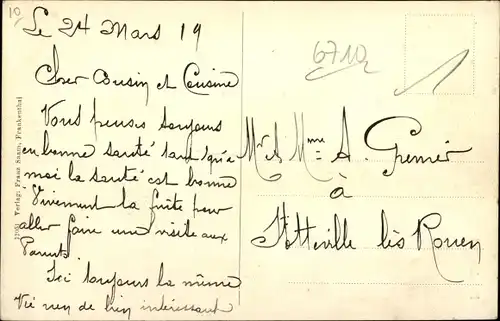 10
Le 24 Mars 19
Cher Cousin et Cousine
Vous pensés toujours
en bonne santé tant qu'à
moi la santé est bonne
Vivement la fuite pour
aller faire une visite aux
Parents.
Ici toujours la même
Vie rien de bien intéressant
6710
Mr & Mme A. Grenier
à
Sotteville lès Rouen
17981 Verlag: Franz Saam, Frankenthal